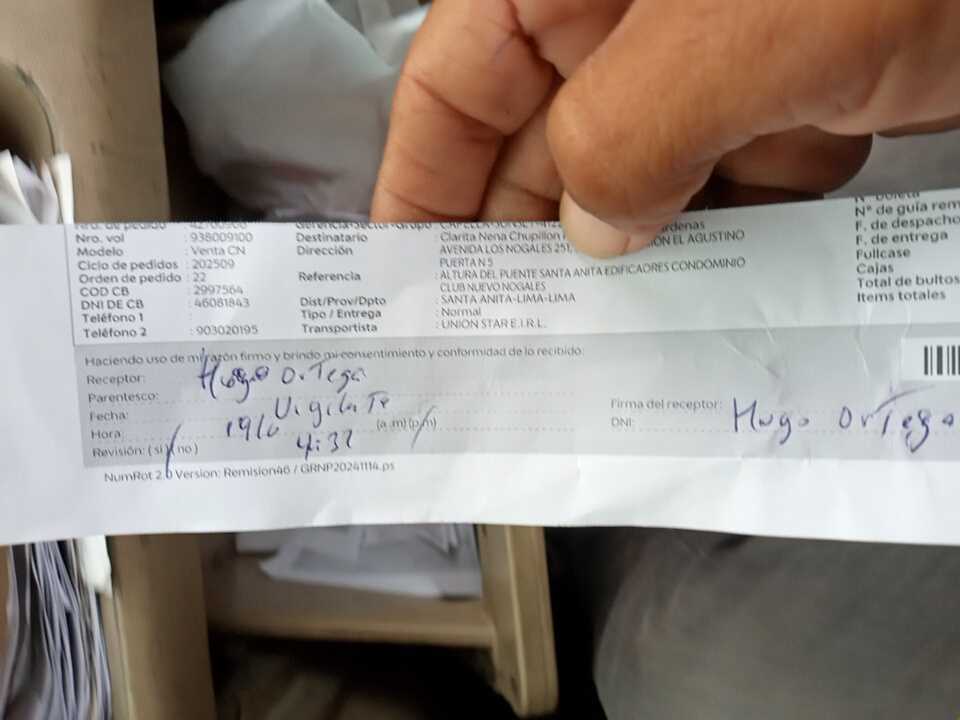 Nro. de pedido : 42700960 Gerencia-Sector-Grupo : CAPELLA-SUNSET-4122
Nro. vol : 938009100 Destinatario : Clarita Nena Chupillon denas
Modelo : Venta CN Dirección : AVENIDA LOS NOGALES 251, ION EL AGUSTINO
Ciclo de pedidos : 202509 PUERTA N 5
Orden de pedido : 22 Referencia : ALTURA DEL PUENTE SANTA ANITA EDIFICAORES CONDOMINIO
COD CB : 2997564 CLUB NUEVO NOGALES
DNI DE CB : 46081843 Dist/Prov/Dpto : SANTA ANITA-LIMA-LIMA
Teléfono 1 : Tipo / Entrega : Normal
Teléfono 2 : 903020195 Transportista : UNION STAR E.I.R.L.
N° Boleta
N° de guía rem
F. de despacho
F. de entrega
Fullcase
Cajas
Total de bultos
Items totales
Haciendo uso de mi razón firmo y brindo mi consentimiento y conformidad de lo recibido:
Receptor: Hugo Ortega
Parentesco: Vigilate
Fecha: 19/6
Hora: 4:32 (a.m) (p/m)
Revisión: ( si ) ( no )
Firma del receptor: Hugo Ortega
DNI:
NumRot 2.0 Version: Remision46 / GRNP20241114.ps